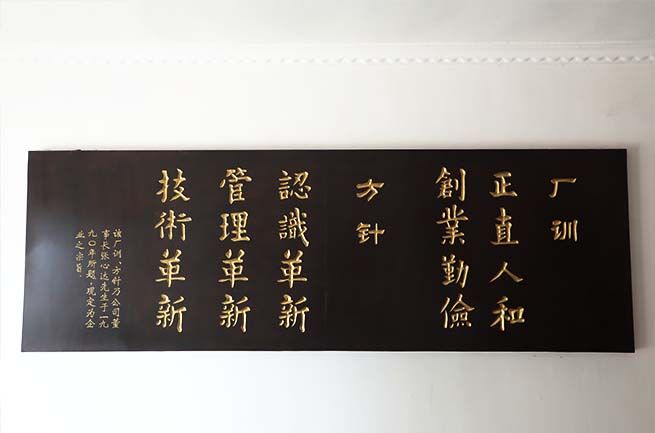 厂训
正直人和
創業勤儉
方针
認識革新
管理革新
技術革新
该厂训、方针乃公司董
事长张心达先生于一九
九〇年所题，现定为企
业之宗旨．